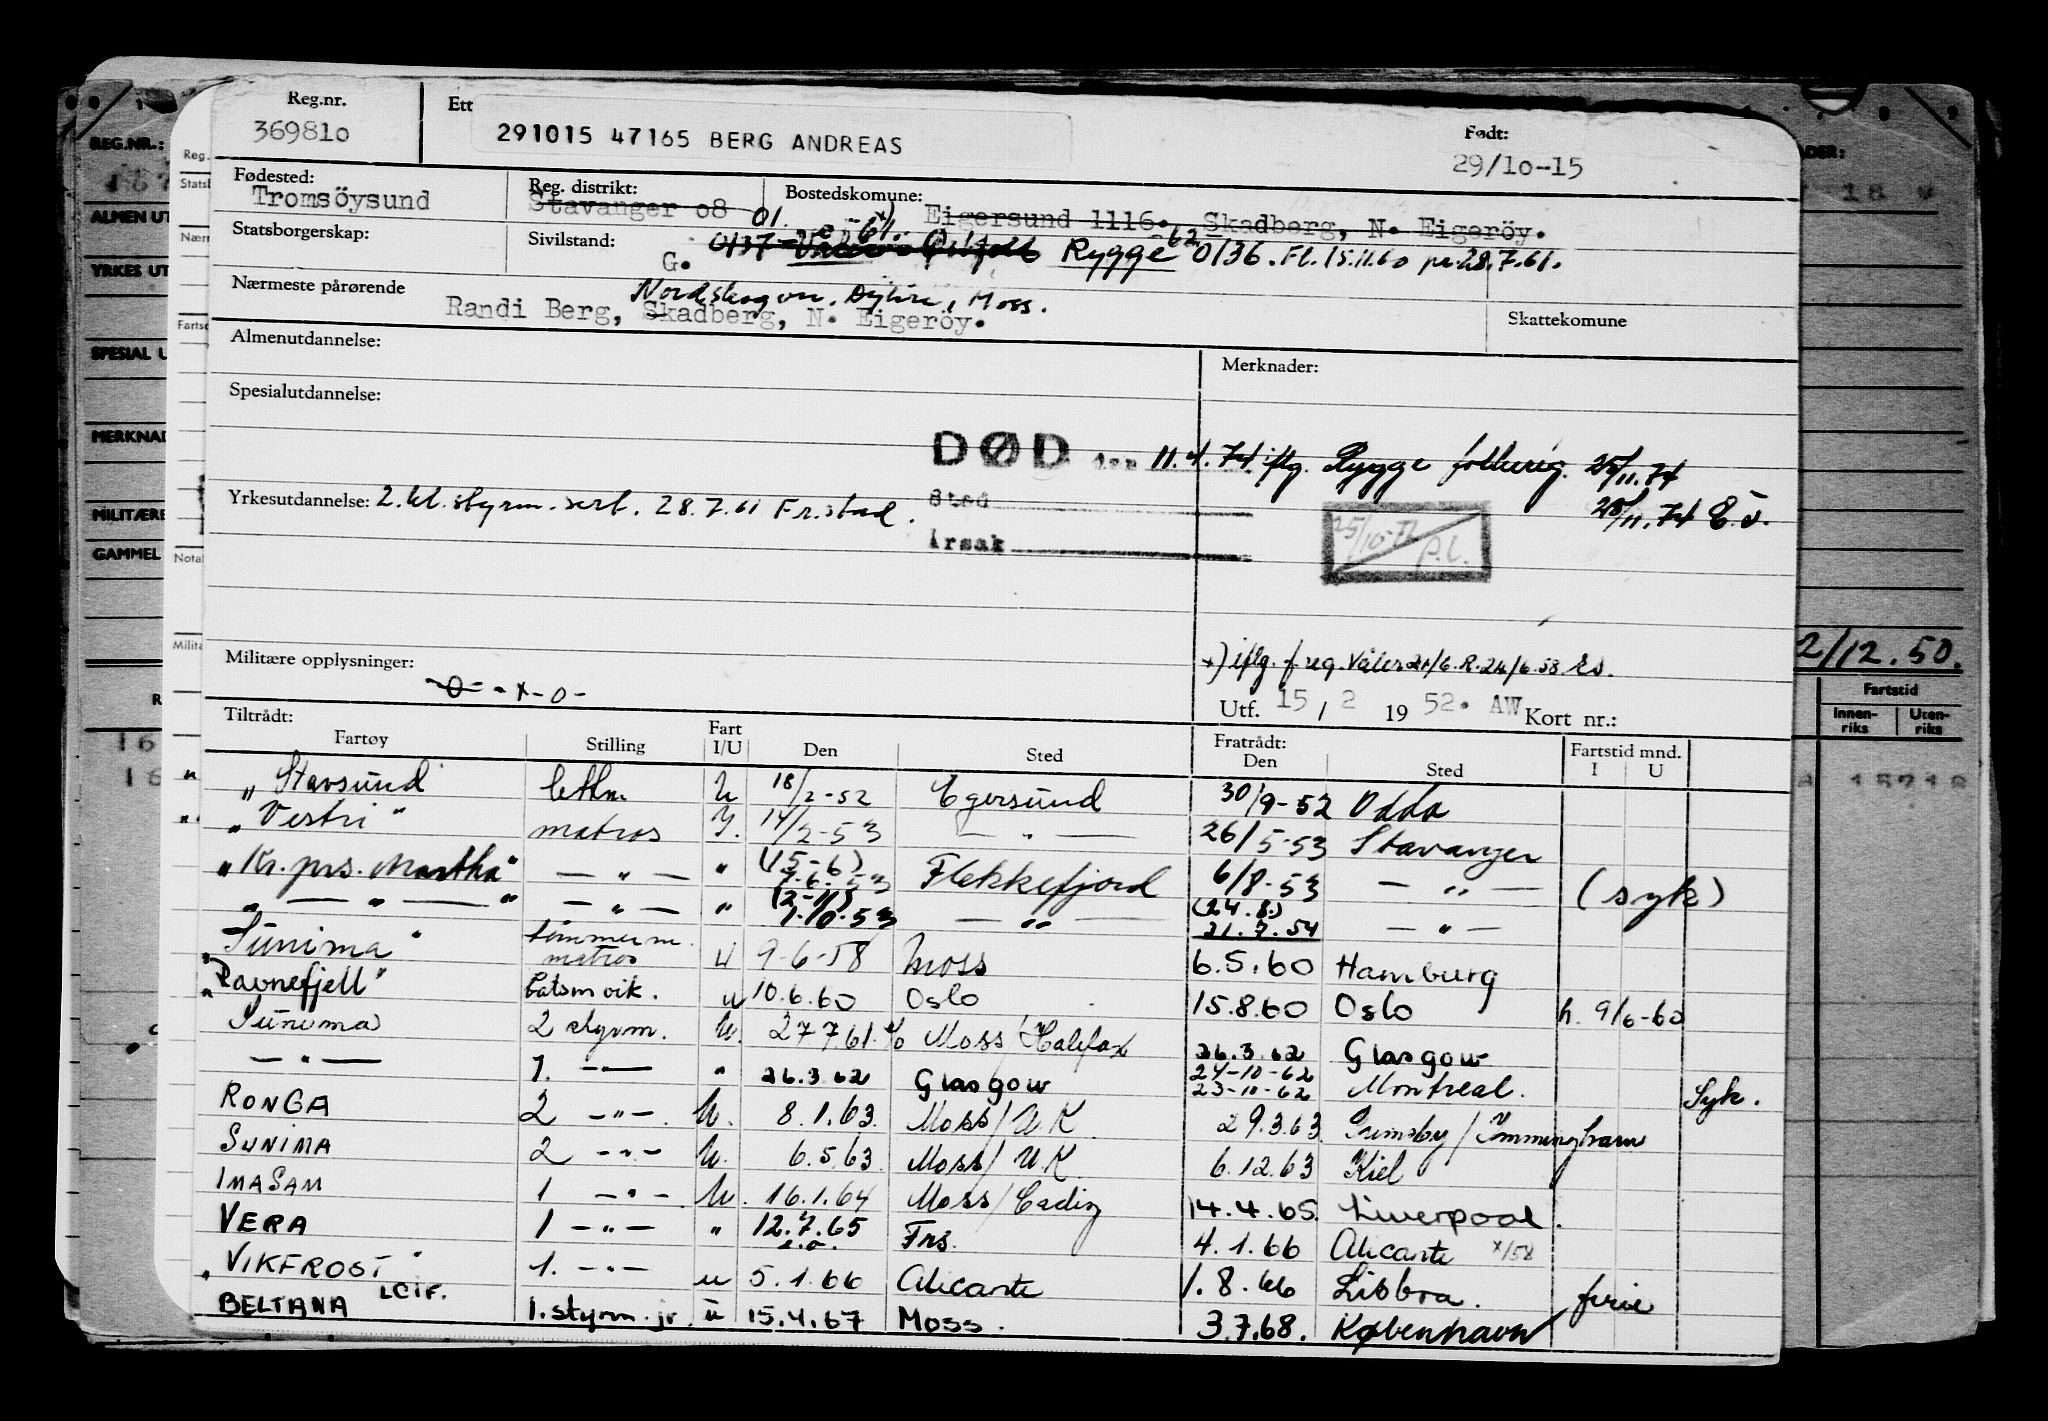 Reg.nr.
369810
Ett
291015 47165 BERG ANDREAS
Født:
29/10-15
Fødested:
Tromsöysund
Reg. distrikt:
Stavanger 08 01.
Bostedskomune:
Eigersund 1116. Skadberg, N. Eigeröy.
Statsborgerskap:
Sivilstand:
G.
0137 Rygge 62 0136. Fl. 15.11.60 pr. 28.7.61.
Nærmeste pårørende
Moss.
Randi Berg, Skadberg, N. Eigeröy.
Skattekomune
Almenutdannelse:
Merknader:
Spesialutdannelse:
DØD den 11.4.74 iflg. Rygge folkereg. 25/11.74
Sted
28/11.74
Yrkesutdannelse: 2. kl. styrm. sert. 28.7.61 Fr.stad.
Årsak
25/10-72 P.L.
Militære opplysninger:
-0- -x-0-
x) iflg. f.reg. Våler 21/6. R. 24/6.58 Es.
Utf. 15 / 2 1952. AW Kort nr.:
Tiltrådt:
Fartøy Stilling Fart I/U Den Sted Fratrådt: Den Sted Fartstid mnd. I U
"Stavsund lettm. U 18/2-52 Egersund 30/9-52 Odda
"Vestri" matros I. 14/2-53 — " — 26/5-53 Stavanger
"Kr. prs. Martha" — " — " (15-6) 7.6.53 Flekkefjord 6/8-53 — " — (syk)
" — " — " — " — " (2-11) 1.10.53 — " — (24.8.) 21.7.54 — " —
Sunima" tømmerm. matros U 9-6-58 Moss 6.5.60 Hamburg
"Ravnefjell" båtsm vik. u 10.6.60 Oslo 15.8.60 Oslo h. 9/6-60
"Sunima 2 styrm. U. 27 7 61 Moss/Halifax 26.3.62 Glasgow
— " — 1. — " — " 26.3.62 Glasgow 24-10-62 23-10-62 Montreal. Syk.
RONGA 2 — " — U. 8.1.63. Moss/UK 29.3.63. Grimsby/Immingham
SUNIMA 2 — " — U. 6.5.63. Moss/UK 6.12.63 Kiel
IMASAM 1 — " — U. 16.1.64 Moss/Cadiz 14.4.65. Liverpool.
VERA 1 — " — " 12.7.65 Frs. 4.1.66 Alicante x/58
VIKFROST" 1. — " — u 5.1.66 Alicante 1.8.66 Lisboa. ferie
"BELTANA 1. styrm. jr. u 15.4.67 Moss. 3.7.68. København
REG.NR.:
ALMEN UT
YRKES UT
SPESIAL U
MERKNAD
MILITÆRE
GAMMEL
Reg.
Statsb
Nærm
Fartsc
Notal
Milita
2/12.50.
Fartstid
Innen-riks
Uten-riks